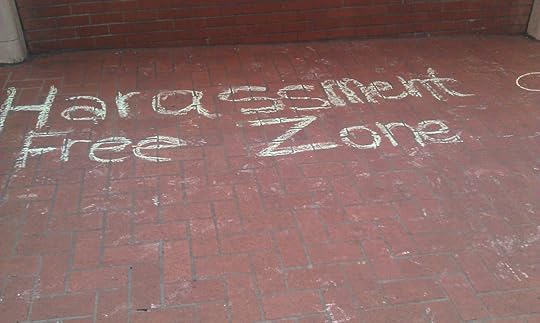 Harassment
Free Zone